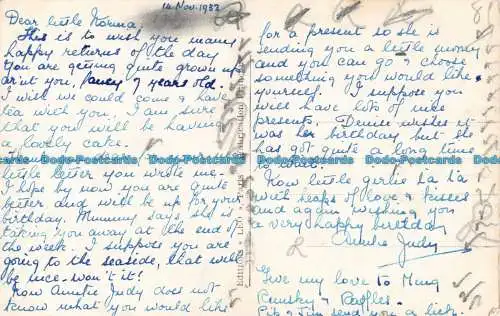 14 Nov. 1932
Dear little Norma,
This is to wish you many
happy returns of the day
You are getting quite grown up
ar'nt you, fancy 7 years old.
I wish we could come & have
tea with you. I am sure
that you will be having
a lovely cake.
little letter you wrote me.
I hope by now you are quite
better and will be up for your
birthday. Mummy says she is
taking you away at the end of
the week. I suppose you are
going to the seaside, that will
be nice - won't it!
Now Auntie Judy does not
know what you would like
for a present so she is
sending you a little money
and you can go & choose
something you would like
yourself. I suppose you
will have lots of nice
presents. Denise wishes it
was her birthday but she
has got quite a long time
to wait.
Now little girlie ta ta
with heaps of love & kisses
and again wishing you
a very happy birthday
Auntie Judy
Give my love to Ming
& Baffles.
& Jim send you a lick.
Dodo-Postcards Dodo-Postcards Dodo-Postcards Dodo-Postcards